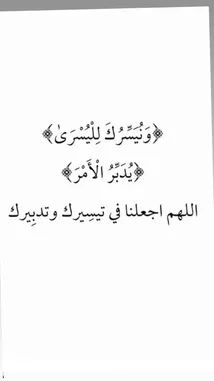 ﴿وَنُيَسِّرُكَ لِلْيُسْرَىٰ﴾
﴿يُدَبِّرُ الْأَمْرَ﴾
اللهم اجعلنا في تيسِيرك وتدبِيرك